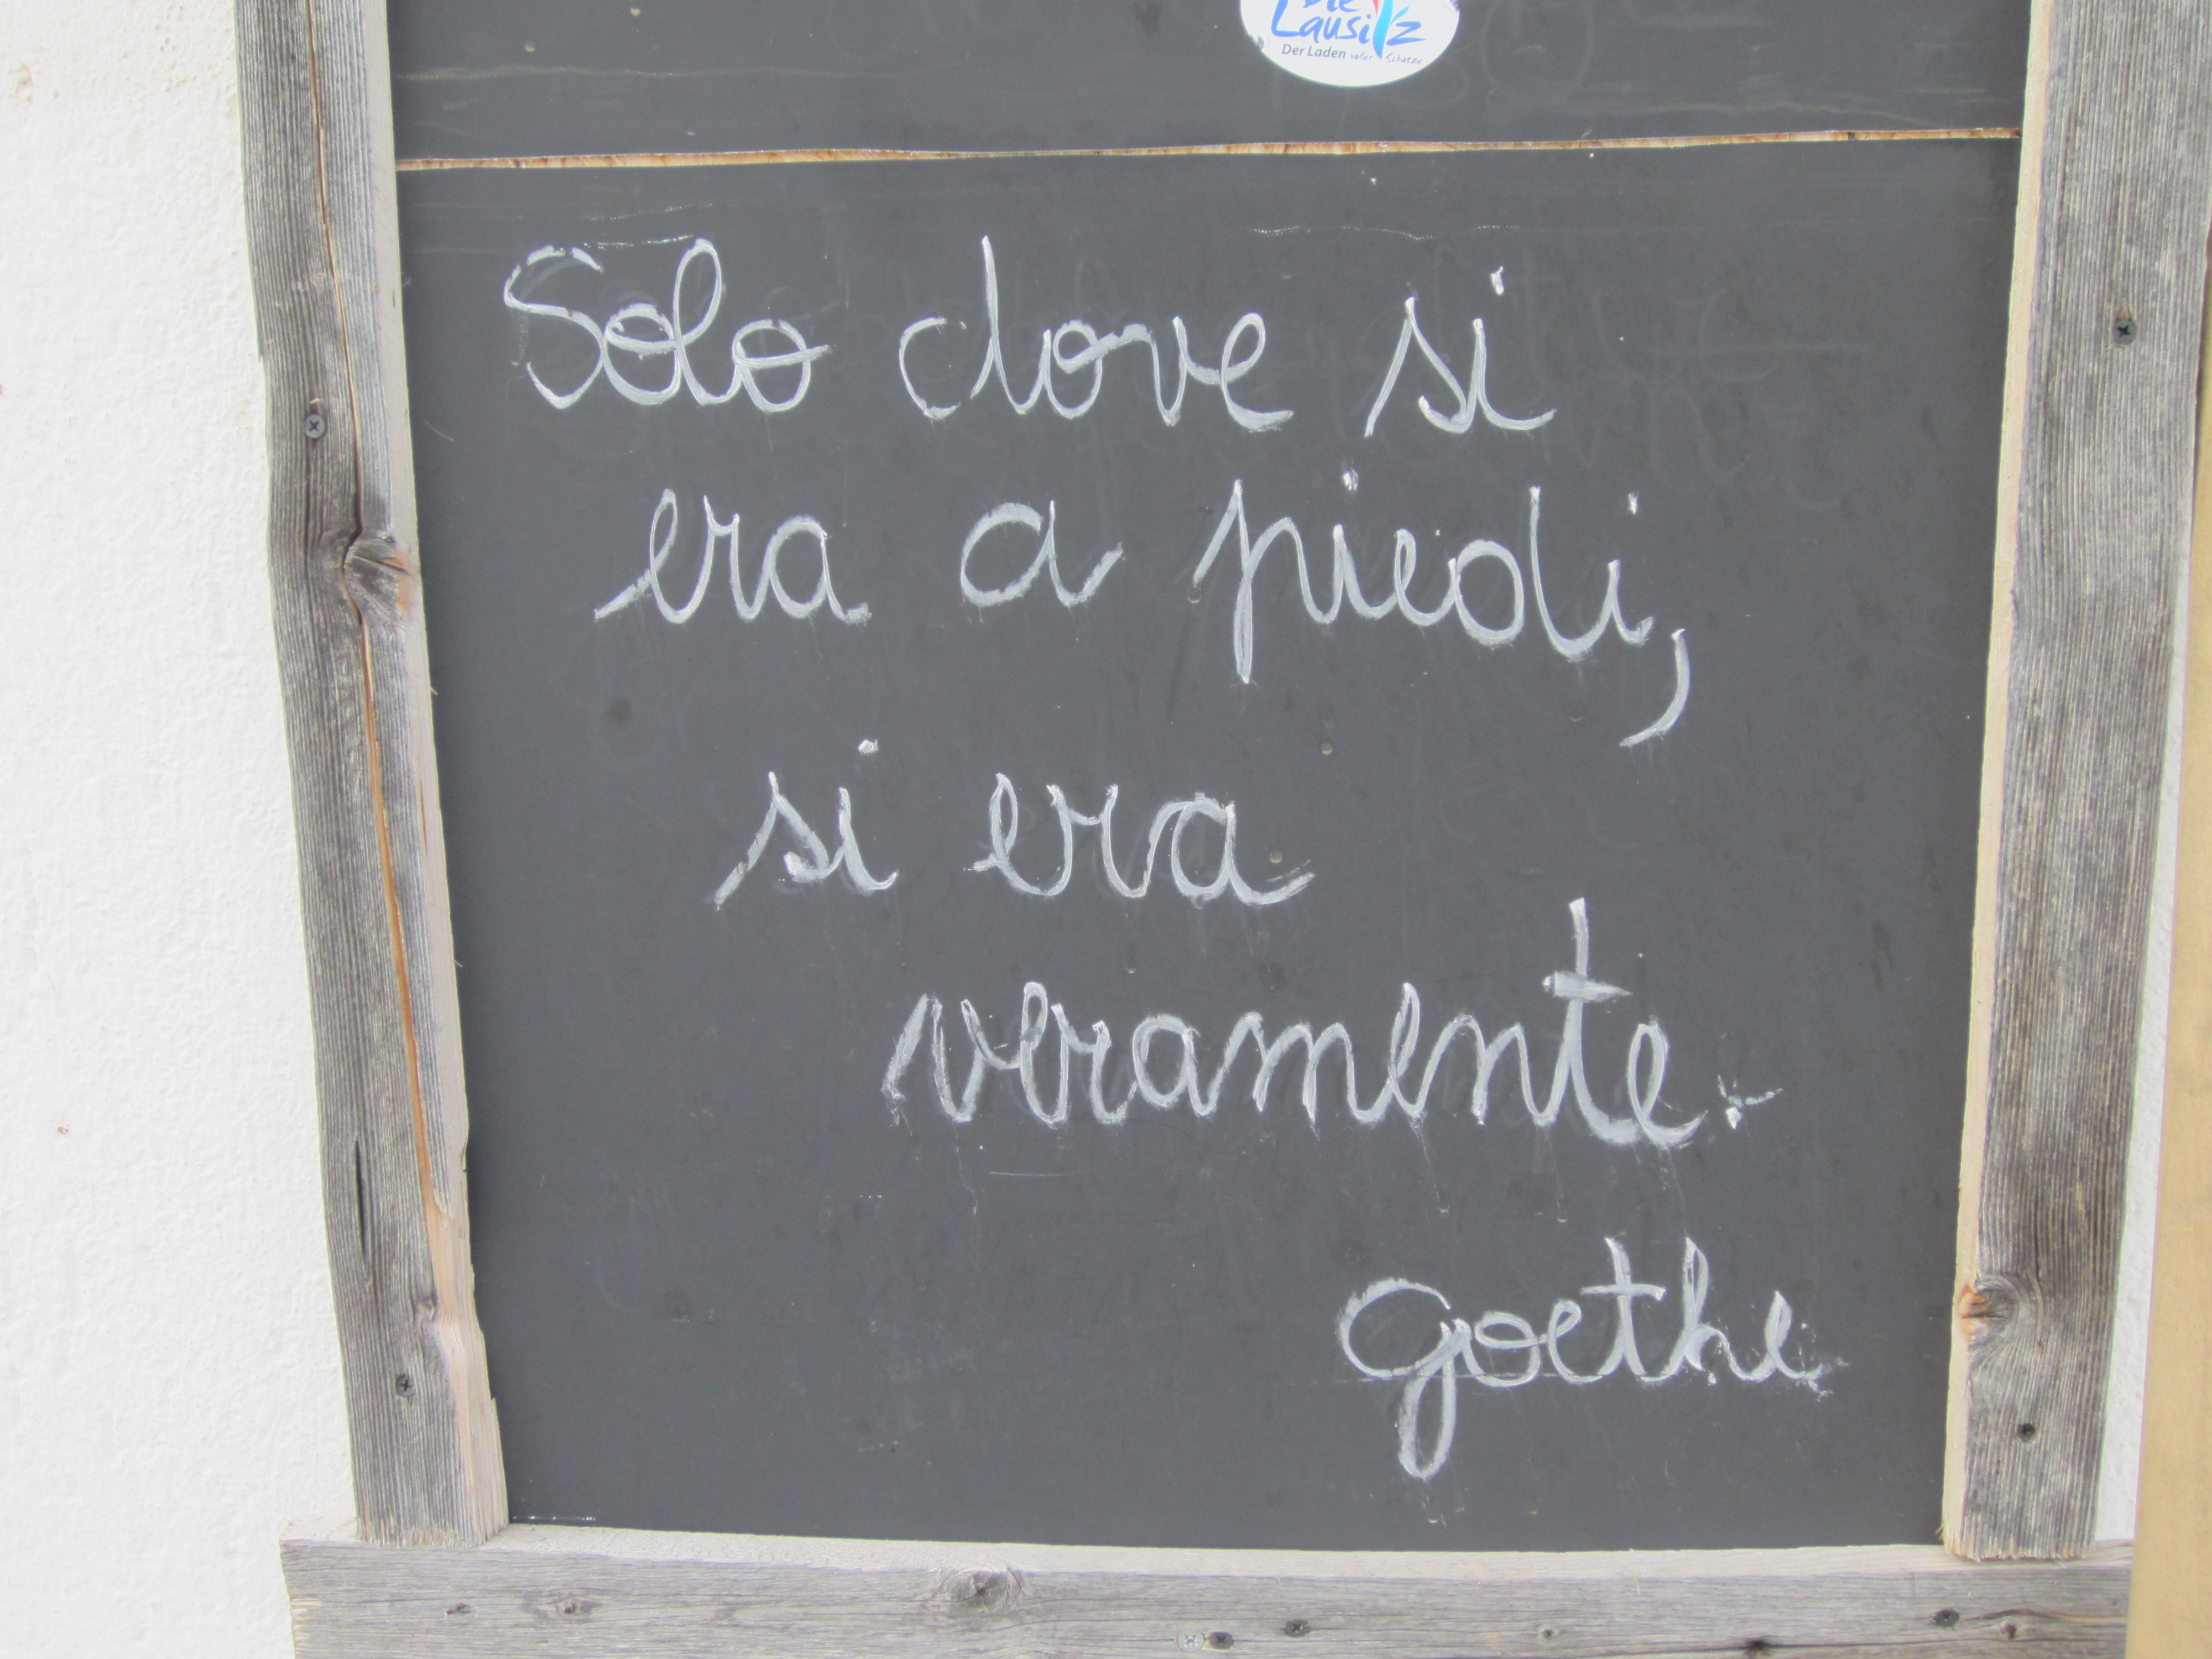 Die
Lausitz
Der Laden voller Schätze
Solo dove si
era a piedi,
si era
veramente.
Goethe